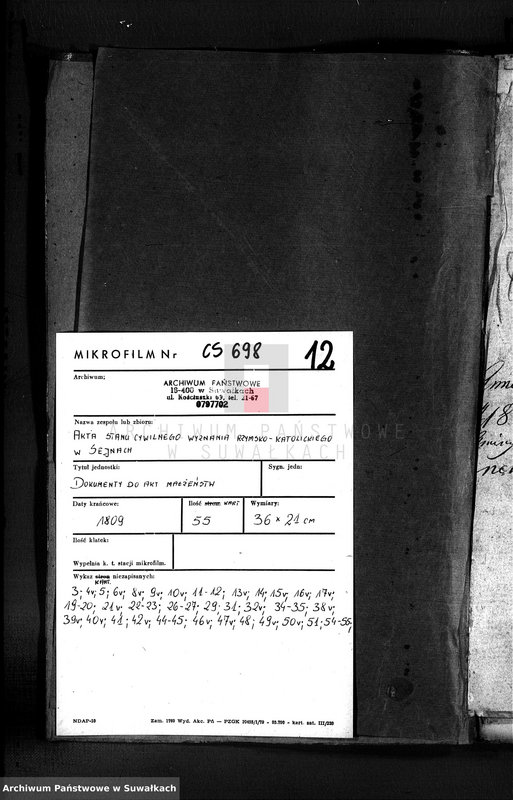 MIKROFILM Nr CS 698 12
Archiwum:
ARCHIWUM PAŃSTWOWE
16-400 w Suwałkach
ul. Kościuszki 69, tel. 21-67
0797702
Nazwa zespołu lub zbioru:
AKTA STANU CYWILNEGO WYZNANIA RZYMSKO-KATOLICKIEGO
W SEJNACH
Tytuł jednostki: Sygn. jedn:
DOKUMENTY DO AKT MAŁŻEŃSTW
Daty krańcowe: Ilość stron: KART Wymiary:
1809 55 36 × 21 cm
Ilość klatek:
Wypełnia k. t. stacji mikrofilm.
Wykaz stron niezapisanych:
KART.
3; 4v; 5; 6v; 8v; 9v; 10v; 11-12; 13v; 14; 15v; 16v; 17v;
19-20; 21v; 22-23; 26-27; 29-31; 32v; 34-35; 38v;
39v; 40v; 41; 42v; 44-45; 46v; 47v; 48; 49v; 50v; 51; 54-55;
NDAP-50
ARCHIWUM PAŃSTWOWE
W SUWAŁKACH
Archiwum Państwowe w Suwałkach